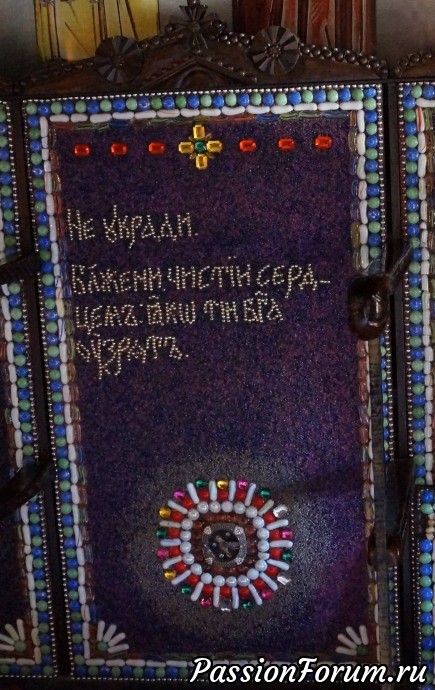 Не укради.
Бл҃жени чистїи сердо-
цемъ: ꙗкѡ тїи бг҃а
ᲂу҆зрѧтъ.
PassionForum.ru